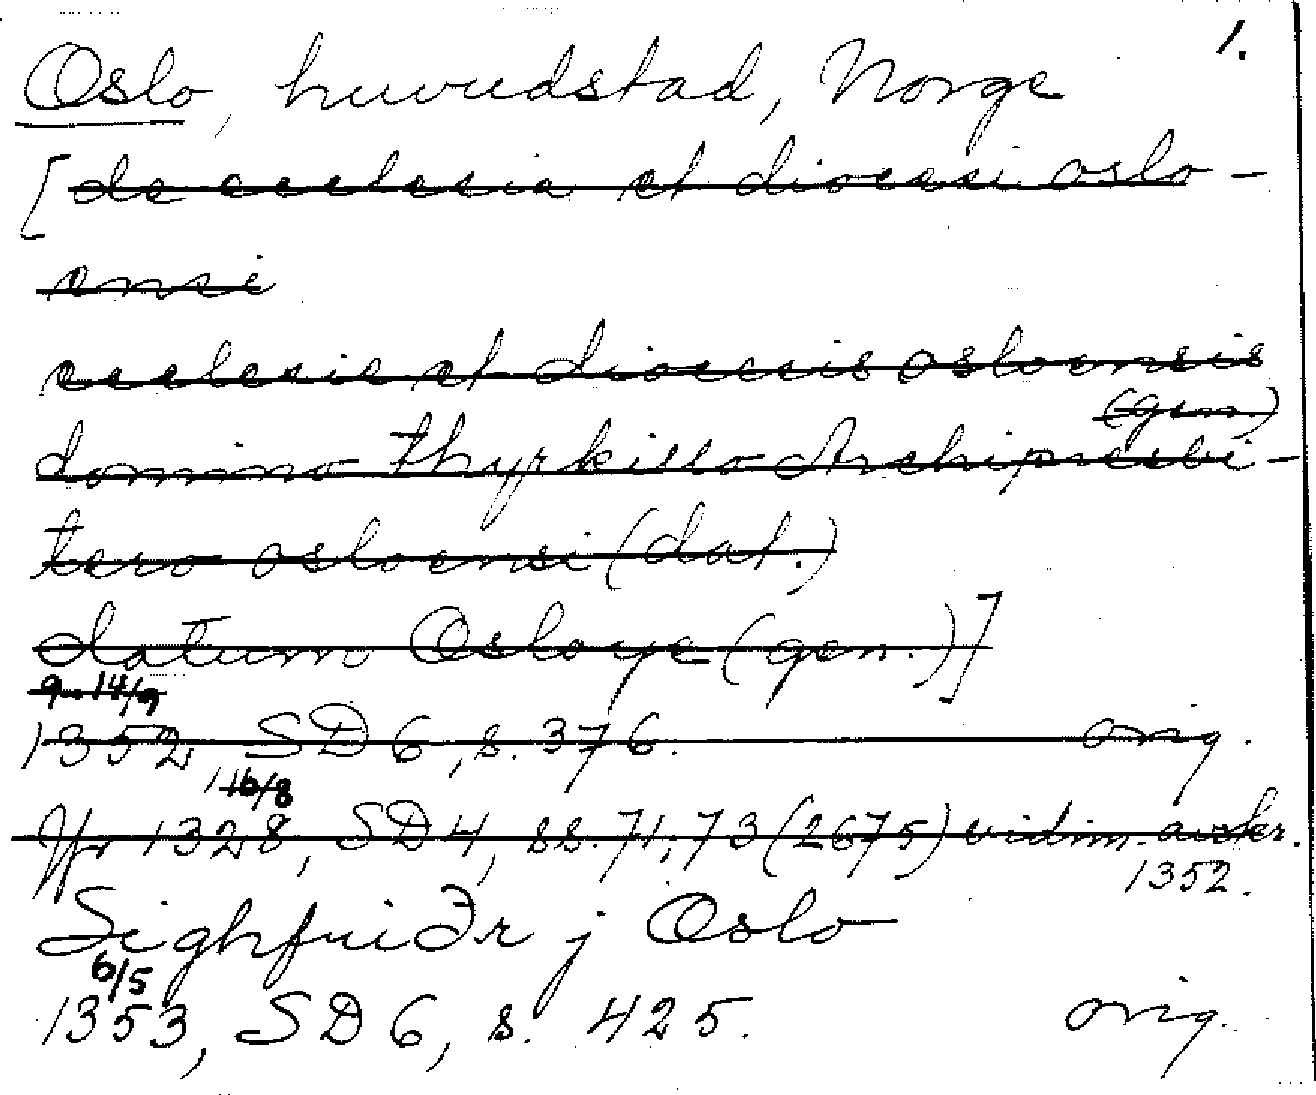 1.
Oslo, huvudstad, Norge
[de ecclesia et diocesi oslo-
ensi
ecclesie et diocesis osloensis
(gen.)
domino Thyrkillo Archipresbi-
tero osloensi (dat.)
datum Osloye (gen.)]
9–14/9
1352, SD 6, s. 376. orig.
16/8
Jfr 1328, SD 4, ss. 71, 73 (2675) vidim. avskr.
1352.
Sighfriðr j Oslo
6/5
1353, SD 6, s. 425. orig.